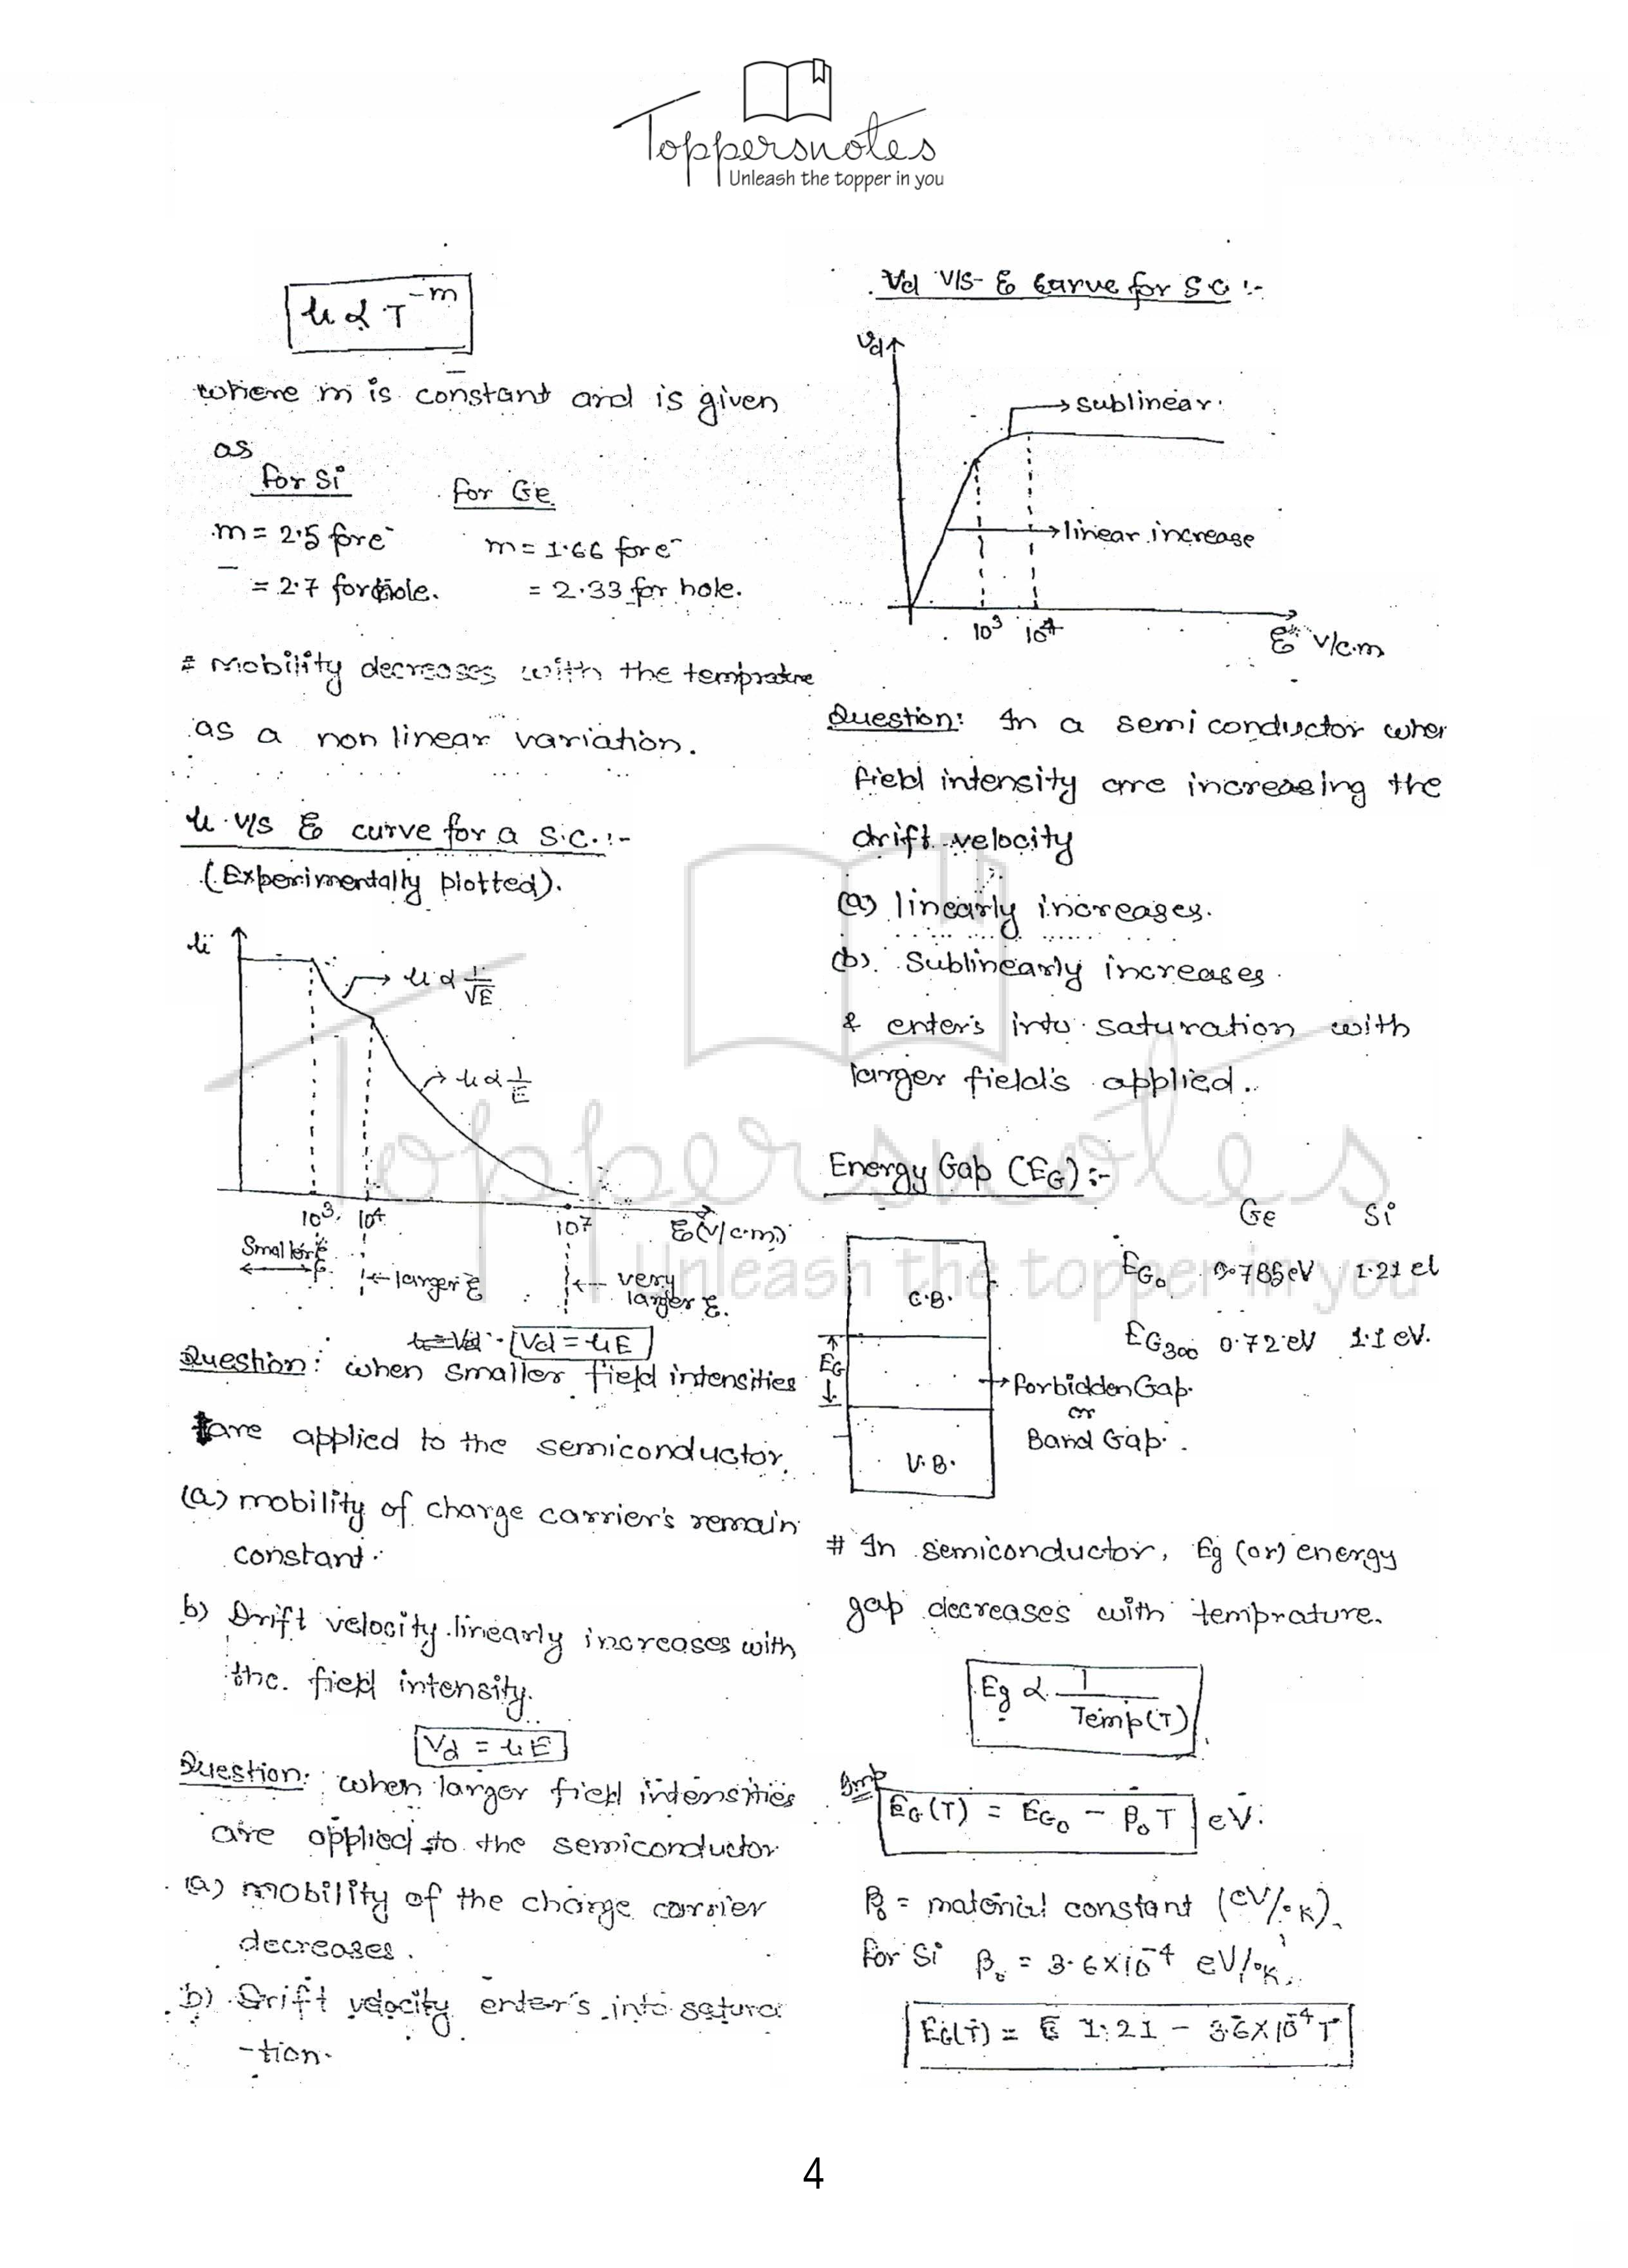 Toppersnotes
Unleash the topper in you
μ α T^-m
where m is constant and is given
as
for Si
for Ge
m = 2.5 for e⁻
m = 1.66 for e⁻
= 2.7 for hole.
= 2.33 for hole.
# Mobility decreases with the temprature
as a non linear variation.
μ v/s E curve for a S.C. :-
(Experimentally plotted).
μ
μ α 1/√E
μ α 1/E
10³ 10⁴ 10⁷ E(V/cm)
Smaller E
← larger E
← very
larger E.
Vd = μE
Question: when smaller field intensities
are applied to the semiconductor.
(a) mobility of charge carrier's remain
constant.
b) Drift velocity linearly increases with
the field intensity.
Vd = μE
Question: when larger field intensities
are applied to the semiconductor
(a) mobility of the charge carrier
decreases.
b) Drift velocity enter's into satura
-tion.
Vd V/S E Curve for S C :-
Vd
→ sublinear.
→ linear increase
10³ 10⁴
E V/cm
Question: In a semiconductor when
field intensity are increasing the
drift velocity
(a) linearly increases.
(b). Sublinearly increases.
& enter's into saturation with
larger field's applied.
Energy Gap (EG) :-
Ge Si
EG₀ 0.785eV 1.21 eV
EG₃₀₀ 0.72 eV 1.1 eV.
C.B.
EG
→ Forbidden Gap.
or
Band Gap.
V.B.
# In semiconductor, Eg (or) energy
gap decreases with temprature.
Eg α 1/Temp(T)
Imp
EG(T) = EG₀ - β₀T eV.
β₀ = material constant (eV/°K).
For Si β₀ = 3.6×10⁻⁴ eV/°K.
EG(T) = 1.21 - 3.6×10⁻⁴T
4